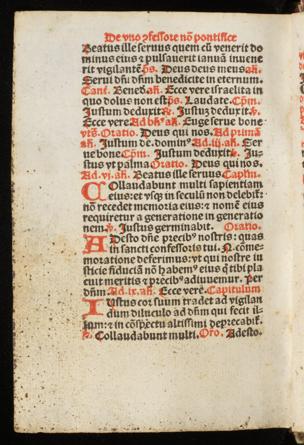 De vno ꝯfessore nō pontifice
Beatus ille seruus quem cū venerit do
minus eius ⁊ pulsauerit ianuā inuene
rit vigilantē. p̄s. Deus deus meus. an̄.
Serui dn̄i dn̄m benedicite in eternum.
Cant. Bened. an̄. Ecce vere israelita in
quo dolus non est. p̄s. Laudate. Cp̄m.
Justum deduxit. ℟. Justuʒ deduxit. ℣.
Ecce vere. Ad an̄. Euge serue bone
Oratio. Deus qui nos. Ad primā
an̄. Justum de. domin⁹. Ad .iij. an̄. Ser
ue bone. Cp̄m. Justum deduxit. ℣. Ju
stus vt palma. Oratio. Deus qui nos.
Ad .vi. an̄. Beatus ille seruus. Capl̄m.
Collaudabunt multi sapientiam
eius: et vsqʒ in seculū non delebit̄:
nō recedet memoria eius: ⁊ nomē eius
requiretur a generatione in generatio
nem. ℣. Justus germinabit. Oratio.
Adesto dn̄e precib⁹ nostris: quas
in sancti confessoris tui. N. cōme⸗
moratione deferimus: vt qui nostre iu
sticie fiduciā nō habem⁹ eius q̄ tibi pla
cuit meritis ⁊ precib⁹ adiuuemur. Per
dn̄m. Ad .ix. an̄. Ecce vere. Capitulum
Justus cor suum tradet ad vigilan
dum diluculo ad dn̄m qui fecit il⸗
lum: ⁊ in cōspectu altissimi deprecabit̄.
℣. Collaudabunt multi. Oro. Adesto.